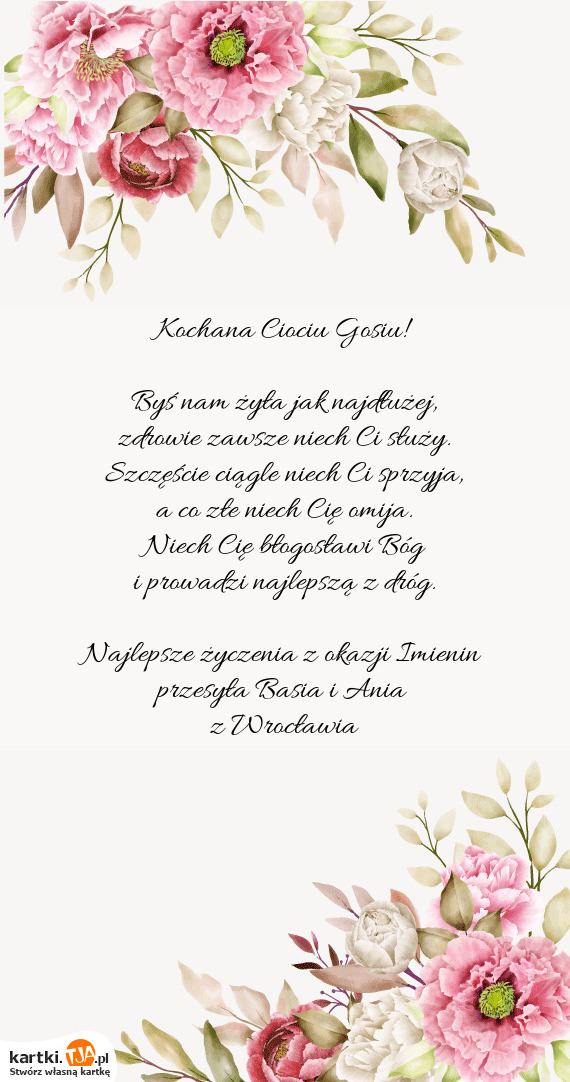 Kochana Ciociu Gosiu!
Byś nam żyła jak najdłużej,
zdrowie zawsze niech Ci służy.
Szczęście ciągle niech Ci sprzyja,
a co złe niech Cię omija.
Niech Cię błogosławi Bóg
i prowadzi najlepszą z dróg.
Najlepsze życzenia z okazji Imienin
przesyła Basia i Ania
z Wrocławia
kartki.TJA.pl
Stwórz własną kartkę